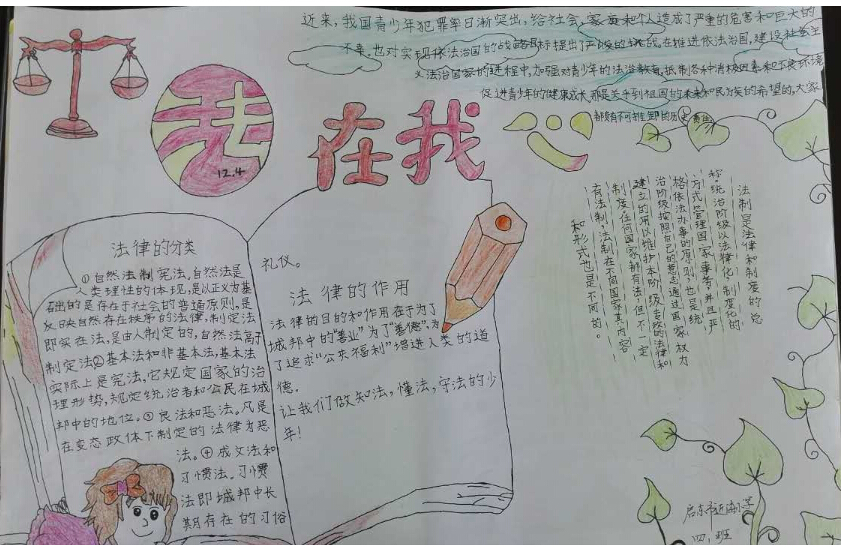 近来，我国青少年犯罪率日渐突出，给社会，家庭和个人造成了严重的危害和巨大的
不幸，也对实现依法治国的战略目标提出了严峻的挑战，在推进依法治国，建设社会主
义法治国家的进程中，加强对青少年的法治教育，抵制各种消极因素和不良环境
促进青少年的健康成长，那是关乎到祖国的未来和民族的希望的，大家
都负有不可推卸的历史责任
法
12.4
在我心
法律的分类
①自然法制宪法，自然法是
人类理性的体现，是以正义为基
础的是存在于社会的普遍原则，是
反映自然存在秩序的法律，制定法
即实在法，是由人制定的，自然法高于
制定法②基本法和非基本法，基本法
实际上是宪法，它规定国家的治
理形势，规定统治者和公民在城
邦中的地位。③良法和恶法。凡是
在变态政体下制定的法律为恶
法。④成文法和
习惯法。习惯
法即城邦中长
期存在的习俗
礼仪。
法律的作用
法律的目的和作用在于为了
城邦中的“善业”为了“善德”，为
了追求“公共福利”增进人类的道
德.
让我们做知法，懂法，守法的少
年！
法制是法律和制度的总
称。统治阶级以法律化，制度化的
方式管理国家事务，并且严
格依法办事的原则，也是统
治阶级按照自己的意志通过国家权力
建立的用以维护本阶级专政的法律和
制度任何国家都有法，但不一定
有法制，法制在不同国家其内容
和形式也是不同的。
四,班